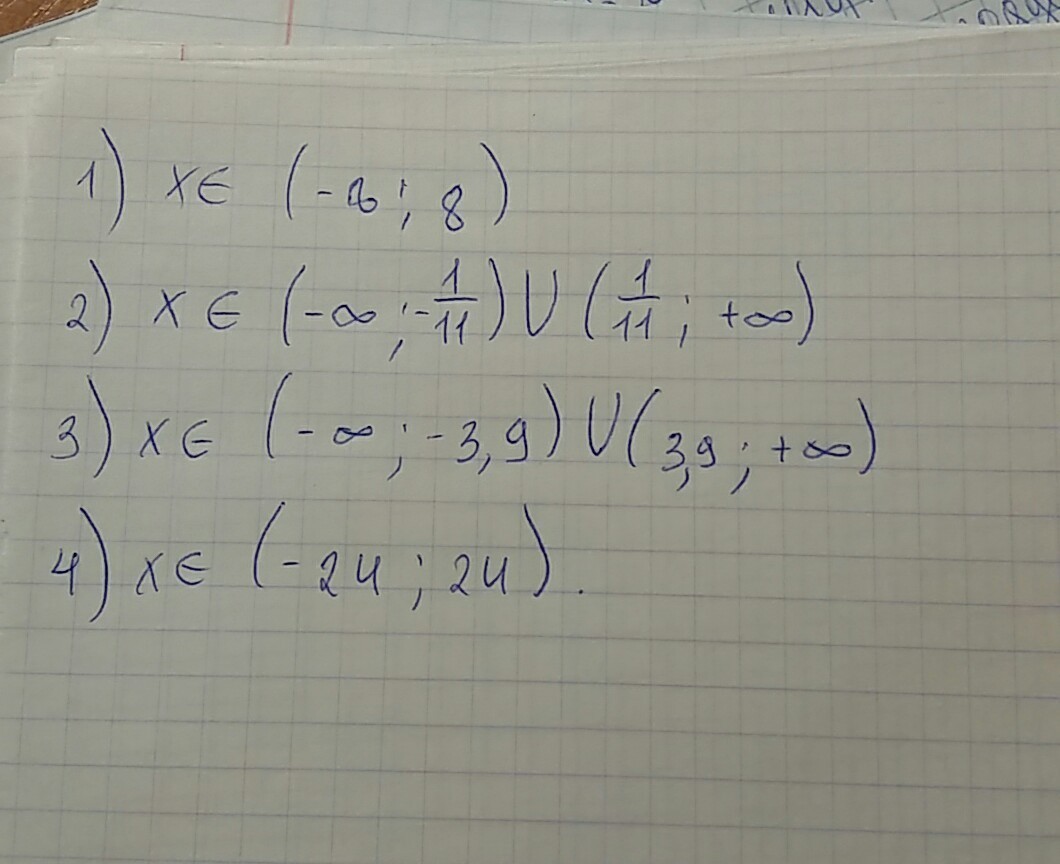 1) x∈ (-8; 8)
2) x∈ (-∞; -1/11) U (1/11; +∞)
3) x∈ (-∞; -3,9) U (3,9; +∞)
4) x∈ (-24; 24).